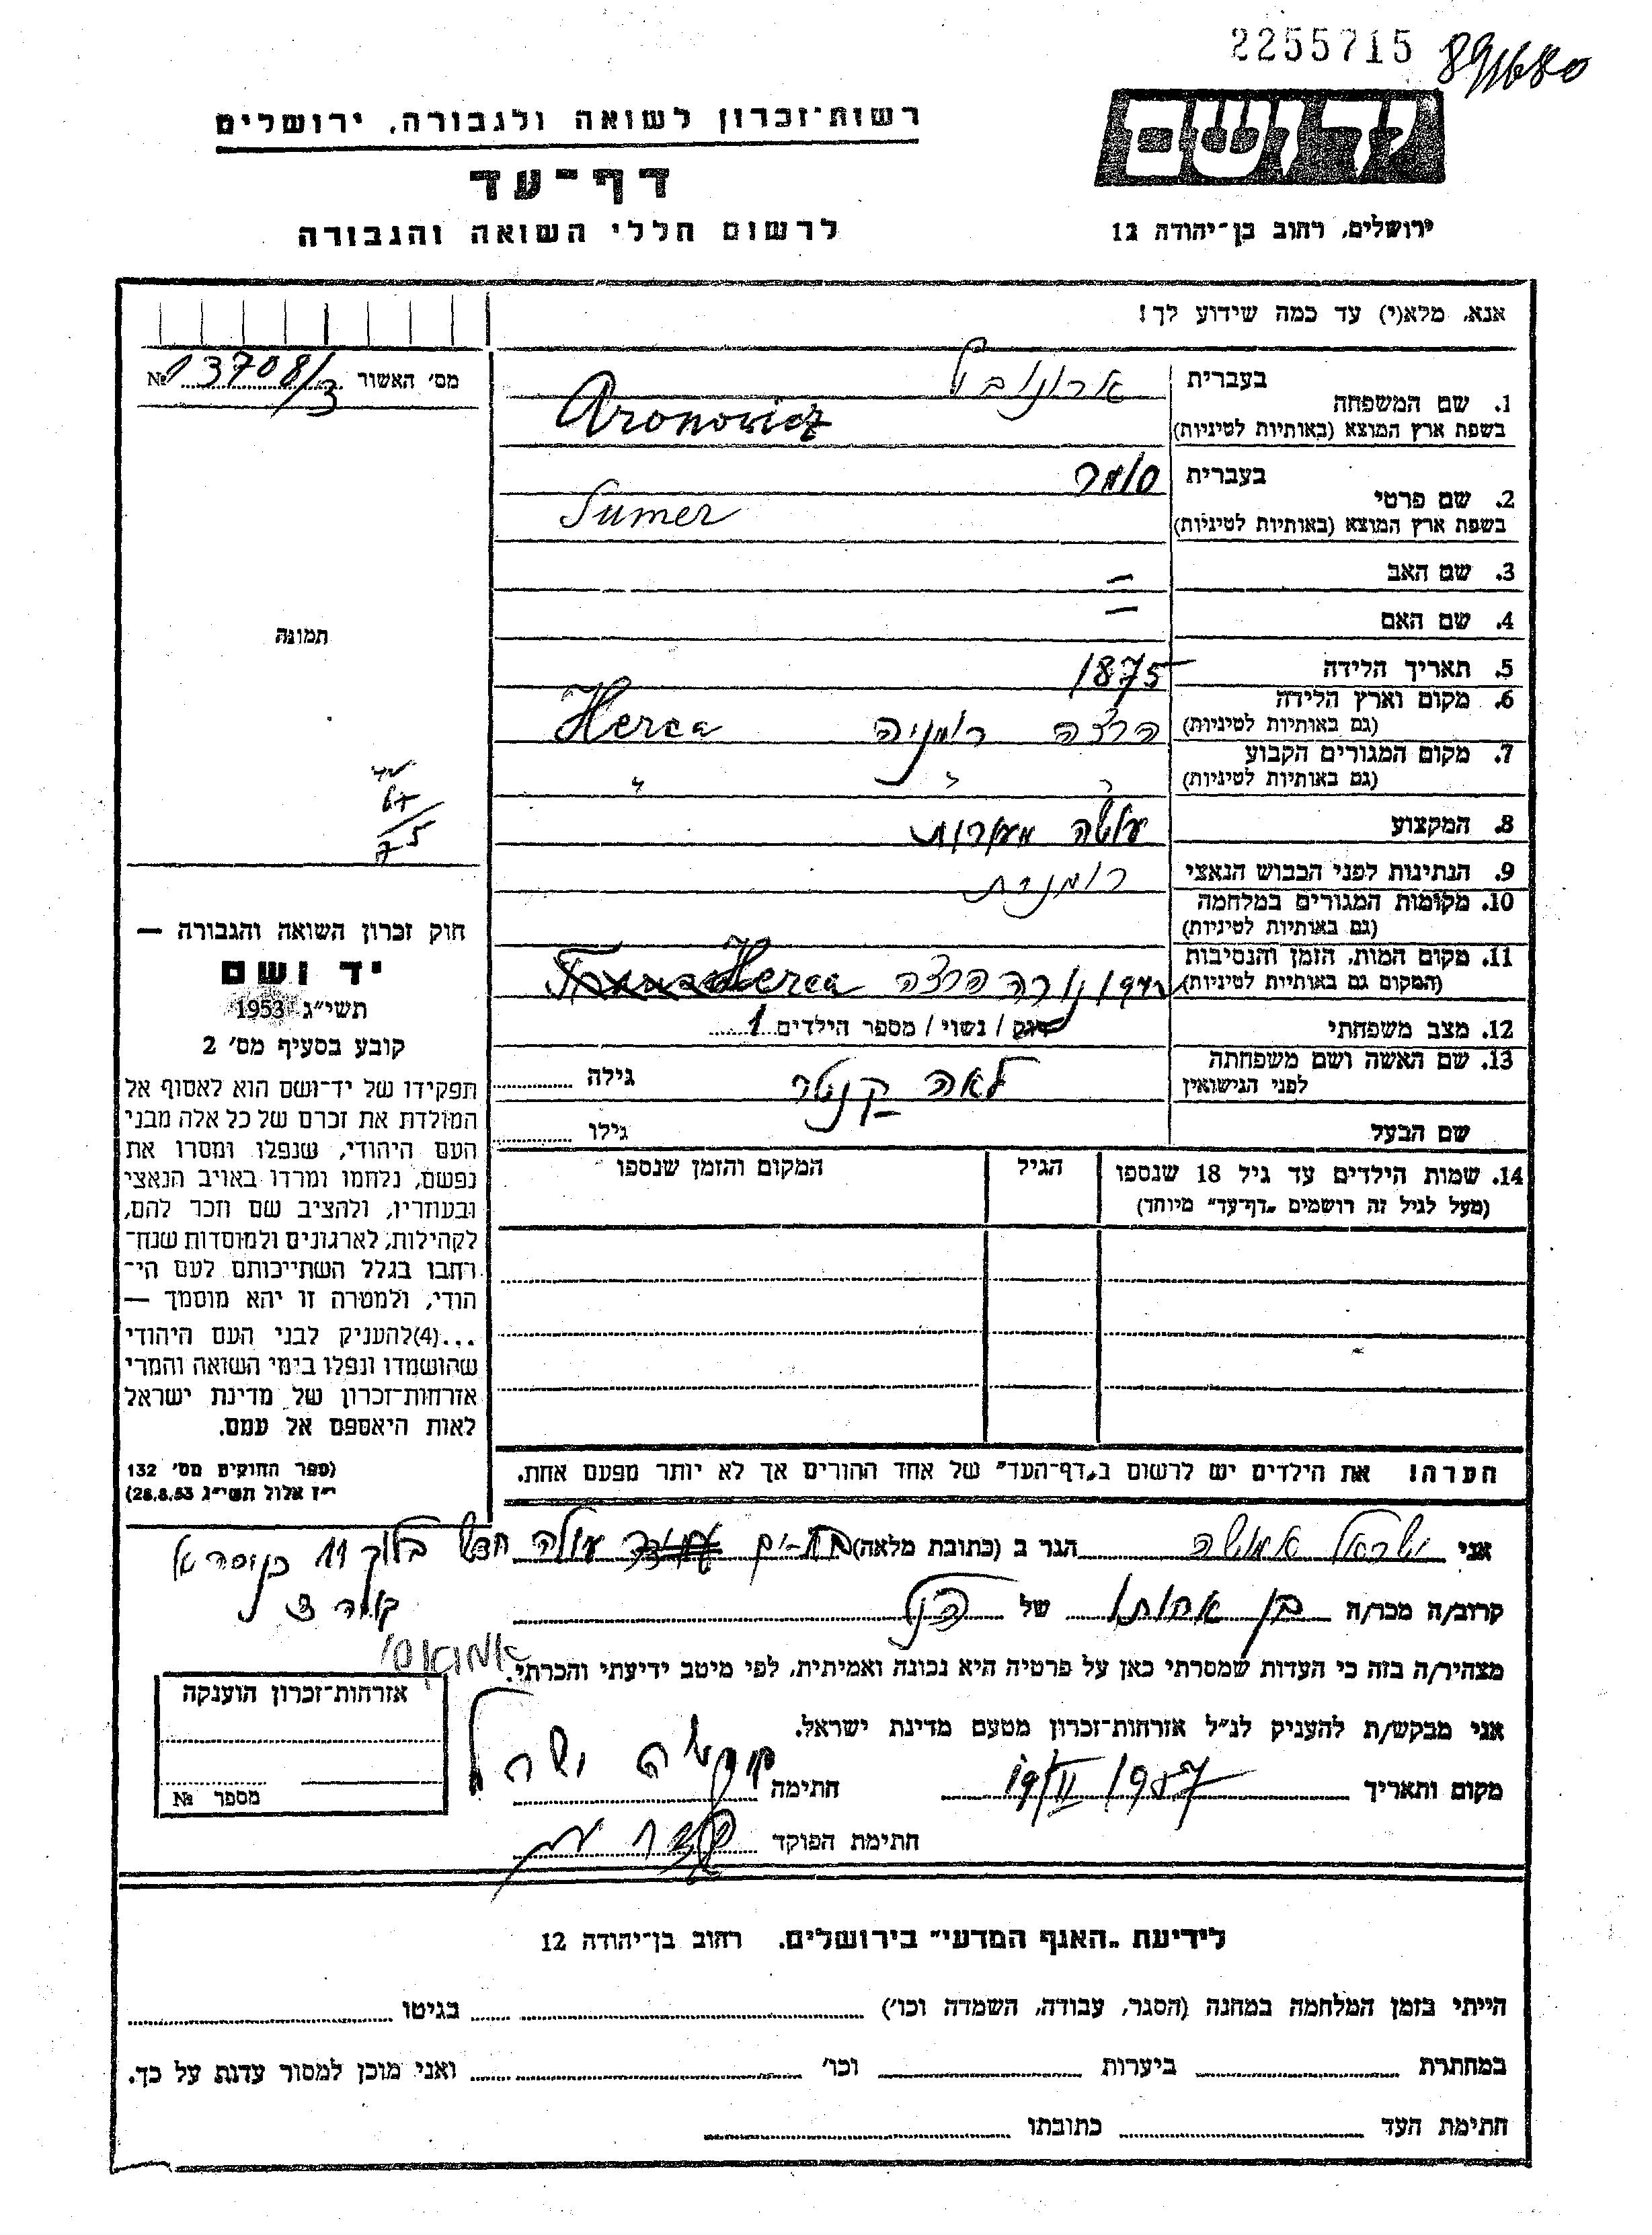 2255715 891680
רשות־זכרון לשואה ולגבורה, ירושלים
דף־עד
לרשום חללי השואה והגבורה
יד ושם
ירושלים, רחוב בן־יהודה 12
אנא, מלא(י) עד כמה שידוע לך!
מס׳ האשור 13708/3 №
1. שם המשפחה
בעברית ארונוביץ
בשפת ארץ המוצא (באותיות לטיניות) Aronowicz
2. שם פרטי
בעברית סומר
בשפת ארץ המוצא (באותיות לטיניות) Sumer
3. שם האב =
4. שם האם –
תמונה
5. תאריך הלידה 1875
6. מקום וארץ הלידה
(גם באותיות לטיניות) הרצה רומניה Herca
7. מקום המגורים הקבוע
(גם באותיות לטיניות) " " "
67
75
8. המקצוע עושה
9. הנתינות לפני הכבוש הנאצי רומנית
10. מקומות המגורים במלחמה
(גם באותיות לטיניות)
11. מקום המות, הזמן והנסיבות
(המקום גם באותיות לטיניות) הרצה Herca
12. מצב משפחתי רוק / נשוי / מספר הילדים 1
13. שם האשה ושם משפחתה
לפני הנישואין לאה קנטר גילה
שם הבעל גילו
14. שמות הילדים עד גיל 18 שנספו
(מעל לגיל זה רושמים „דף־עד” מיוחד)
הגיל
המקום והזמן שנספו
חוק זכרון השואה והגבורה —
יד ושם
תשי״ג 1953
קובע בסעיף מס׳ 2
תפקידו של יד־ושם הוא לאסוף אל
המולדת את זכרם של כל אלה מבני
העם היהודי, שנפלו ומסרו את
נפשם, נלחמו ומרדו באויב הנאצי
ובעוזריו, ולהציב שם וזכר להם,
לקהילות, לארגונים ולמוסדות שנח־
רחבו בגלל השתייכותם לעם הי־
הודי, ולמטרה זו יהא מוסמך —
...(4)להעניק לבני העם היהודי
שהושמדו ונפלו בימי השואה והמרי
אזרחות־זכרון של מדינת ישראל
לאות היאספם אל עמם.
(ספר החוקים מס׳ 132
י״ז אלול תשי״ג 28.8.53)
הערה! את הילדים יש לרשום ב„דף־העד” של אחד ההורים אך לא יותר מפעם אחת.
אני ישראל הגר ב (כתובת מלאה) בת-ים עולה חדש בלוק 11
קרוב/ה מכר/ה בן אחותו של הנ״ל
מצהיר/ה בזה כי העדות שמסרתי כאן על פרטיה היא נכונה ואמיתית, לפי מיטב ידיעתי והכרתי.
אני מבקש/ת להעניק לנ״ל אזרחות־זכרון מטעם מדינת ישראל.
מקום ותאריך 19/II 1957 חתימה ישראל
חתימת הפוקד
אזרחות־זכרון הוענקה
מספר №
לידיעת „האגף המדעי” בירושלים. רחוב בן־יהודה 12
הייתי בזמן המלחמה במחנה (הסגר, עבודה, השמדה וכו׳) בגיטו
במחתרת ביערות וכו׳ ואני מוכן למסור עדות על כך.
חתימת העד כתובתו